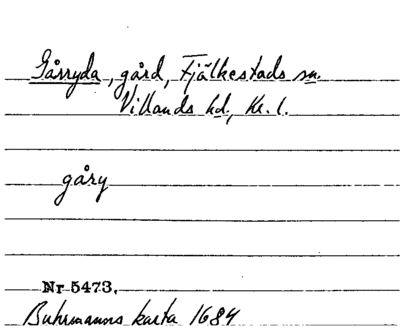 Gårryda, gård, Fjälkestads sn.
Villands hd, Kr. l.
gåry
Nr 5473.
Buhrmanns karta 1684